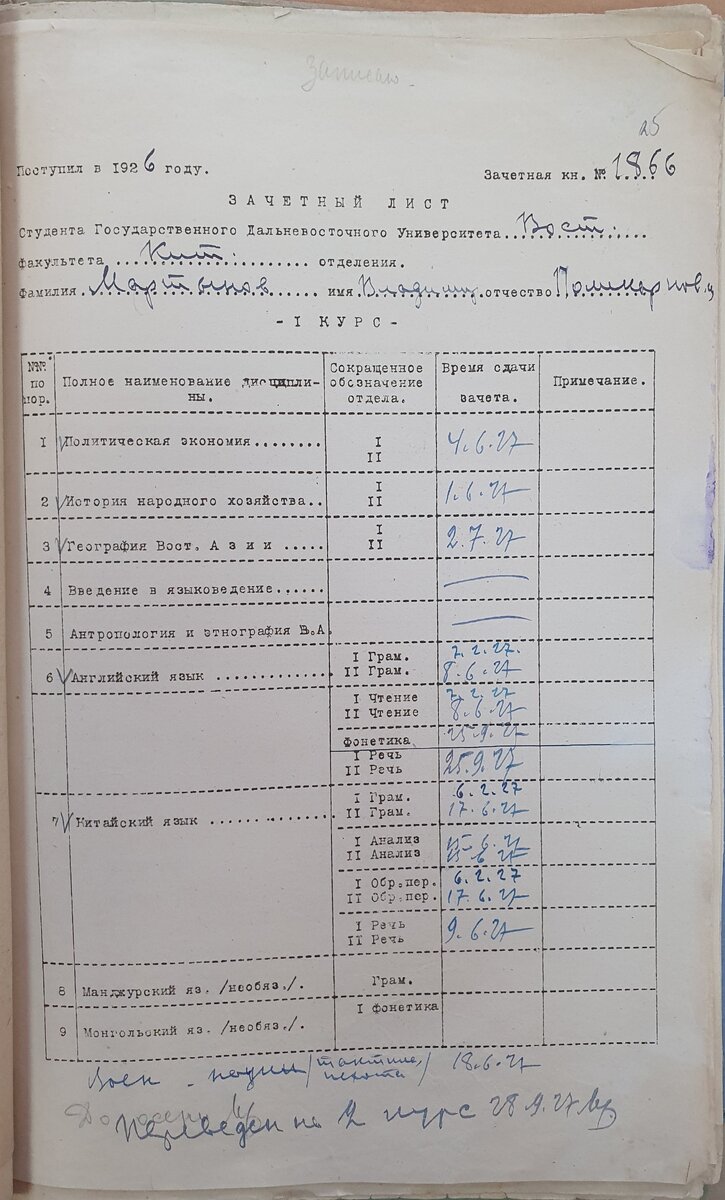 Записаю
25
Поступил в 1926 году. Зачетная кн. № 1866
ЗАЧЕТНЫЙ ЛИСТ
Студента Государственного Дальневосточного Университета Вост.
факультета Кит. отделения.
Фамилия Мартынов имя Владимир отчество Поликарпов.
- I КУРС -
№№ по пор. Полное наименование дисциплины. Сокращенное обозначение отдела. Время сдачи зачета. Примечание.
1 Политическая экономия........ I II 4.6.27
2 История народного хозяйства.. I II 1.6.27
3 География Вост. Азии ..... I II 2.7.27
4 Введение в языковедение......
5 Антропология и этнография В.А.
6 Английский язык ............. I Грам. 7.2.27.
II Грам. 8.6.27
I Чтение 7.2.27
II Чтение 8.6.27
фонетика 25.9.27
I Речь
II Речь 25.9.27
7 Китайский язык .............. I Грам. 6.2.27
II Грам. 17.6.27
I Анализ 15.6.27
II Анализ 15.6.27
I Обр.пер. 6.2.27
II Обр.пер. 17.6.27
I Речь
II Речь 9.6.27
8 Манджурский яз. /необяз./. Грам.
9 Монгольский яз. /необяз./. I фонетика
Воен. науки /тактика пехоты/ 18.6.27
До осени
Переведен на 2 курс 28.9.27